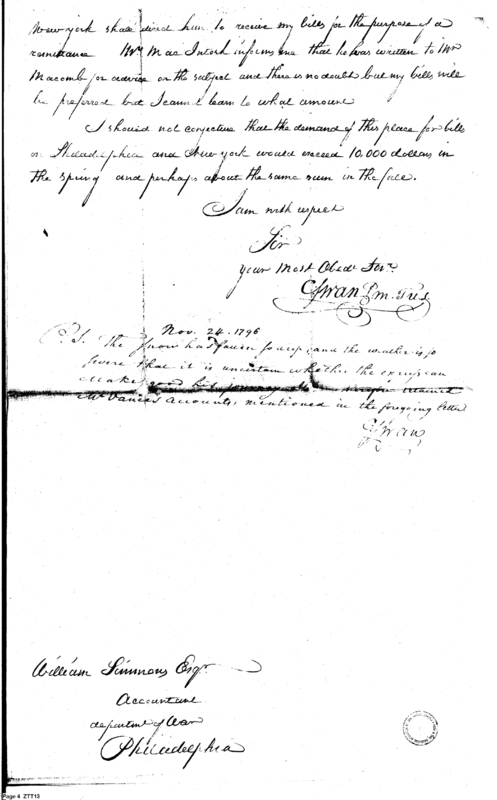 New york shall direct him to receive my bills for the purpose of a
remittance Mr. Mac Intosh informs me that he has written to Mr
Macomb for advice on the subject and there is no doubt but my bills will
be preferred but I cannot learn to what amount
I should not conjecture that the demand of this place for bills
on Philadelphia and New york would exceed 10,000 dollars in
the spring and perhaps about the same sum in the fall.
I am with respect
Sir
your Most Obedt Servt.
CSwan P.m. Trs
Nov. 24. 1796
P.S. The Snow has fallen so deep and the weather is so
severe that it is uncertain whether the express can
make good his
Vances accounts, mentioned in the foregoing letter
CSwan
William Simmons Esqr.
Accountant
department of War
Philadelphia
Page 4 ZTT13